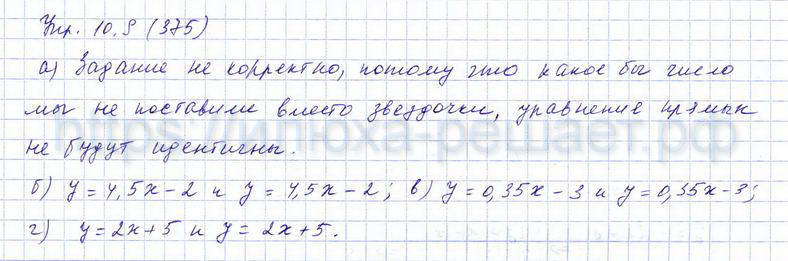 Упр. 10.9 (375)
а) Задание не корректно, потому что какое бы число
мы не поставили вместо звездочки, уравнение прямых
не будут идентичны.
https://илюха-решает.рф
б) y = 4,5x - 2 и y = 4,5x - 2; в) y = 0,35x - 3 и y = 0,35x - 3;
г) y = 2x + 5 и y = 2x + 5.